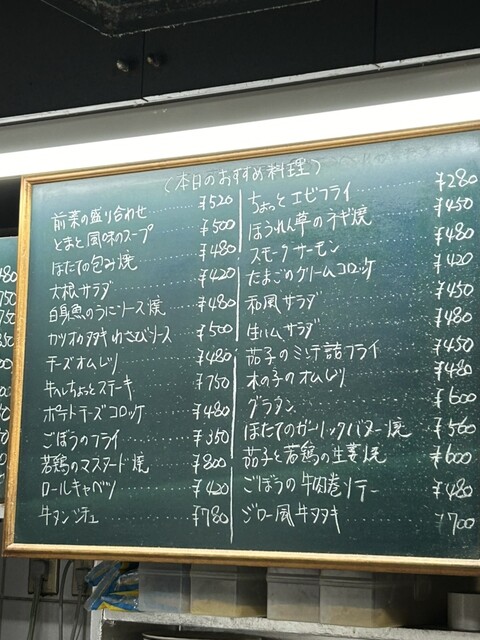 (本日のおすすめ料理)
前菜の盛り合わせ ¥520
とまと風味のスープ ¥500
ほたての包み焼 ¥480
大根サラダ ¥420
白身魚のうにソース焼 ¥480
カツオのタタキわさびソース ¥500
チーズオムレツ ¥480
牛ヘレちょっとステーキ ¥750
ポテトチーズコロッケ ¥480
ごぼうのフライ ¥350
若鶏のマスタード焼 ¥800
ロールキャベツ ¥420
牛タンシチュー ¥780
ちょっとエビフライ ¥280
ほうれん草のチーズ焼 ¥450
スモークサーモン ¥480
たまごのクリームコロッケ ¥420
和風サラダ ¥450
生ハムサラダ ¥480
茄子のミンチ詰フライ ¥450
木の子のオムレツ ¥480
グラタン ¥600
ほたてのガーリックバター焼 ¥560
茄子と若鶏の生姜焼 ¥600
ごぼうの牛肉巻ソテー ¥480
ジロー風牛タタキ ¥700